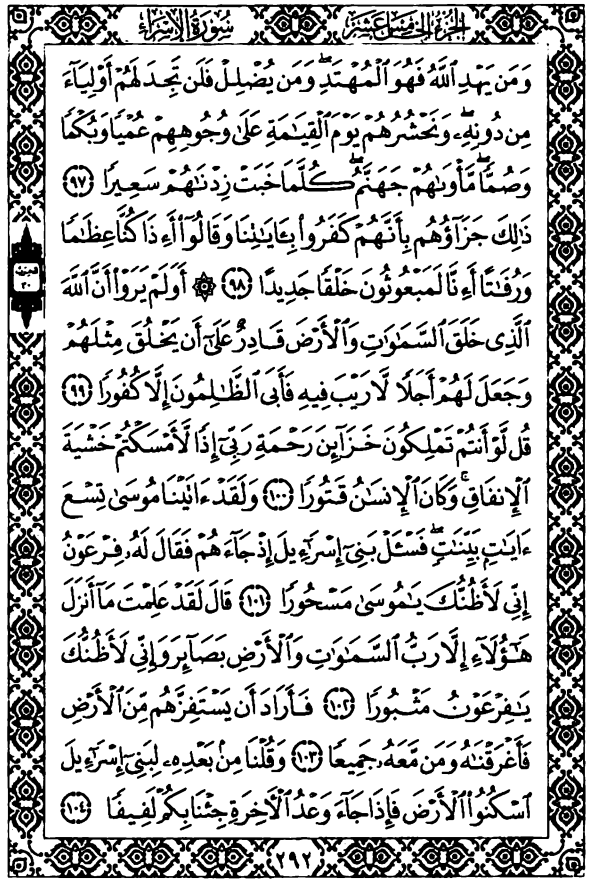 سُورَةُ الإِسْرَاء
الجُزْءُ الخَامِسَ عَشَرَ
وَمَن يَهْدِ ٱللَّهُ فَهُوَ ٱلْمُهْتَدِ ۖ وَمَن يُضْلِلْ فَلَن تَجِدَ لَهُمْ أَوْلِيَآءَ
مِن دُونِهِۦ ۖ وَنَحْشُرُهُمْ يَوْمَ ٱلْقِيَـٰمَةِ عَلَىٰ وُجُوهِهِمْ عُمْيًا وَبُكْمًا
وَصُمًّا ۖ مَّأْوَىٰهُمْ جَهَنَّمُ ۖ كُلَّمَا خَبَتْ زِدْنَـٰهُمْ سَعِيرًا ٩٧
ذَٰلِكَ جَزَآؤُهُم بِأَنَّهُمْ كَفَرُوا۟ بِـَٔايَـٰتِنَا وَقَالُوٓا۟ أَءِذَا كُنَّا عِظَـٰمًا
وَرُفَـٰتًا أَءِنَّا لَمَبْعُوثُونَ خَلْقًا جَدِيدًا ٩٨ ۞ أَوَلَمْ يَرَوْا۟ أَنَّ ٱللَّهَ
ٱلَّذِى خَلَقَ ٱلسَّمَـٰوَٰتِ وَٱلْأَرْضَ قَادِرٌ عَلَىٰٓ أَن يَخْلُقَ مِثْلَهُمْ
وَجَعَلَ لَهُمْ أَجَلًا لَّا رَيْبَ فِيهِ فَأَبَى ٱلظَّـٰلِمُونَ إِلَّا كُفُورًا ٩٩
قُل لَّوْ أَنتُمْ تَمْلِكُونَ خَزَآئِنَ رَحْمَةِ رَبِّىٓ إِذًا لَّأَمْسَكْتُمْ خَشْيَةَ
ٱلْإِنفَاقِ ۚ وَكَانَ ٱلْإِنسَـٰنُ قَتُورًا ١٠٠ وَلَقَدْ ءَاتَيْنَا مُوسَىٰ تِسْعَ
ءَايَـٰتٍۭ بَيِّنَـٰتٍ ۖ فَسْـَٔلْ بَنِىٓ إِسْرَٰٓءِيلَ إِذْ جَآءَهُمْ فَقَالَ لَهُۥ فِرْعَوْنُ
إِنِّى لَأَظُنُّكَ يَـٰمُوسَىٰ مَسْحُورًا ١٠١ قَالَ لَقَدْ عَلِمْتَ مَآ أَنزَلَ
هَـٰٓؤُلَآءِ إِلَّا رَبُّ ٱلسَّمَـٰوَٰتِ وَٱلْأَرْضِ بَصَآئِرَ وَإِنِّى لَأَظُنُّكَ
يَـٰفِرْعَوْنُ مَثْبُورًا ١٠٢ فَأَرَادَ أَن يَسْتَفِزَّهُم مِّنَ ٱلْأَرْضِ
فَأَغْرَقْنَـٰهُ وَمَن مَّعَهُۥ جَمِيعًا ١٠٣ وَقُلْنَا مِنۢ بَعْدِهِۦ لِبَنِىٓ إِسْرَٰٓءِيلَ
ٱسْكُنُوا۟ ٱلْأَرْضَ فَإِذَا جَآءَ وَعْدُ ٱلْـَٔاخِرَةِ جِئْنَا بِكُمْ لَفِيفًا ١٠٤
٢٩٢